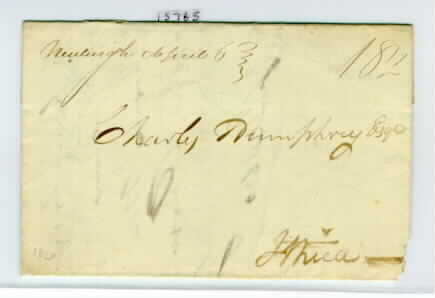 15765
Newburgh April 6
18½
Charles Humphrey Esqr
Ithica